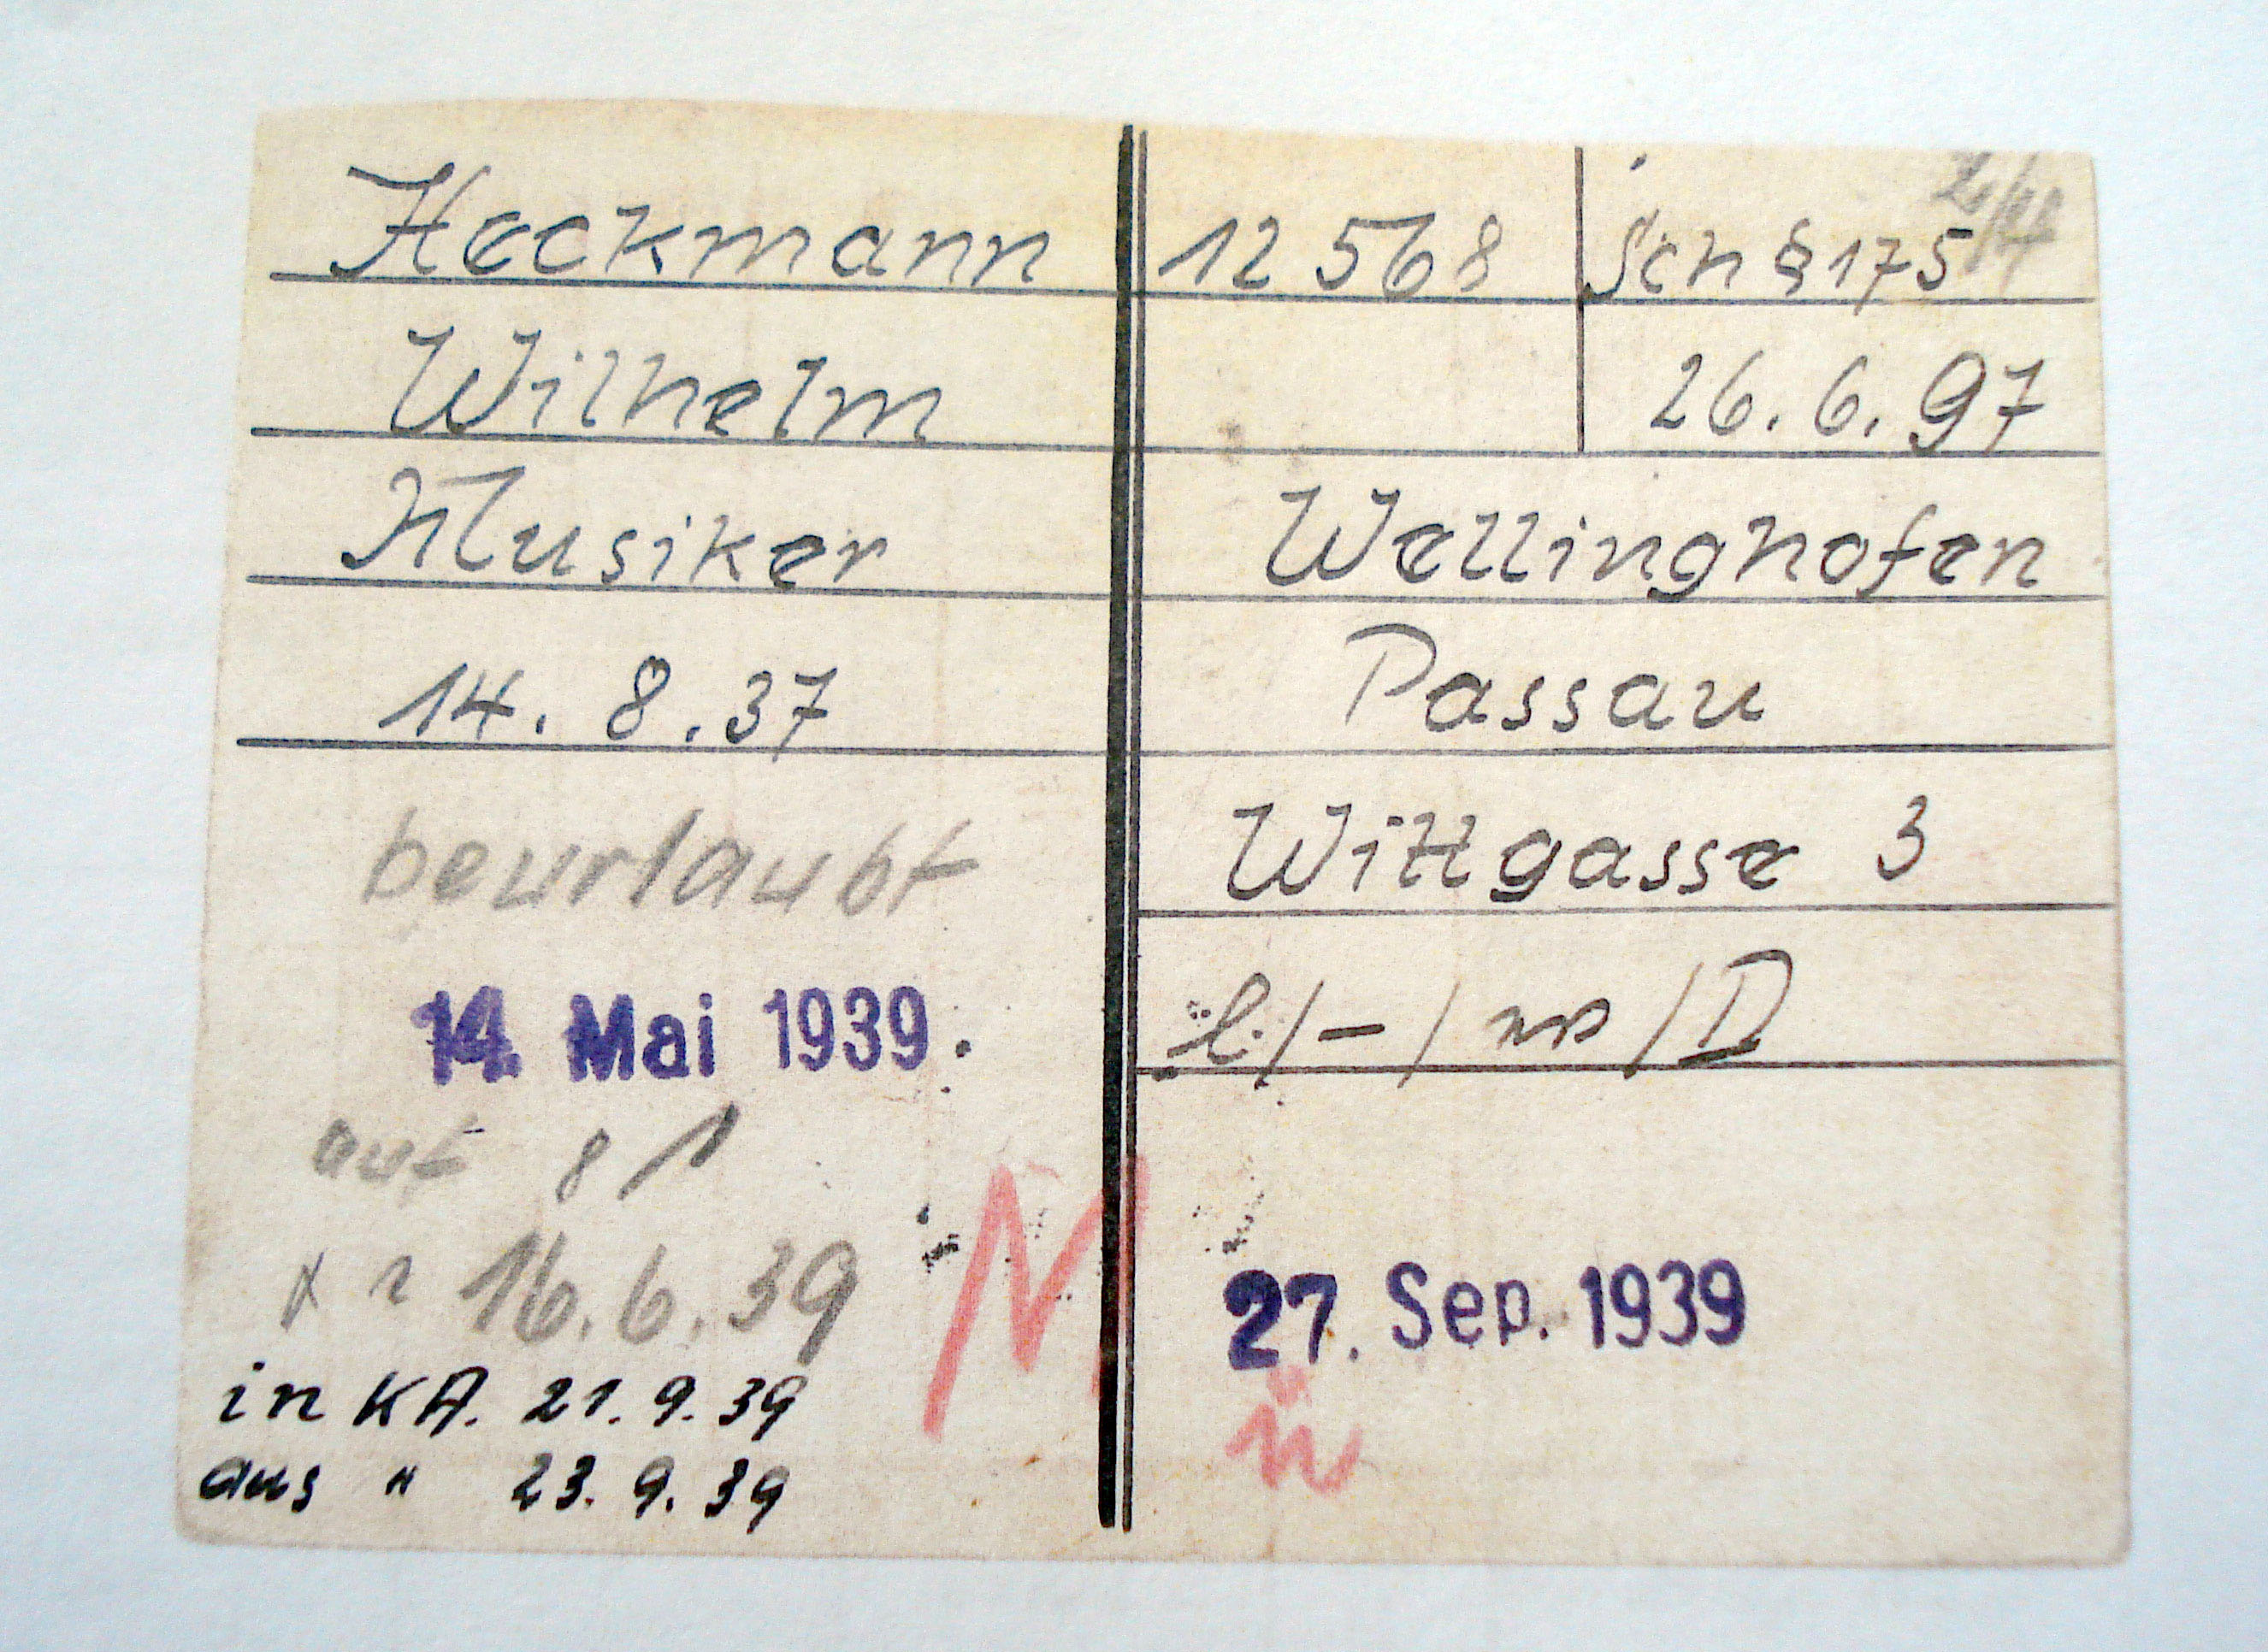 Heckmann
Wilhelm
Musiker
14. 8. 37
beurlaubt
14. Mai 1939.
auf 8 1
16. 6. 39
in KA. 21. 9. 39
aus " 23. 9. 39
12 568
Sch § 175
26. 6. 97
Wellinghofen
Passau
Wittgasse 3
l. / - / / D
27. Sep. 1939